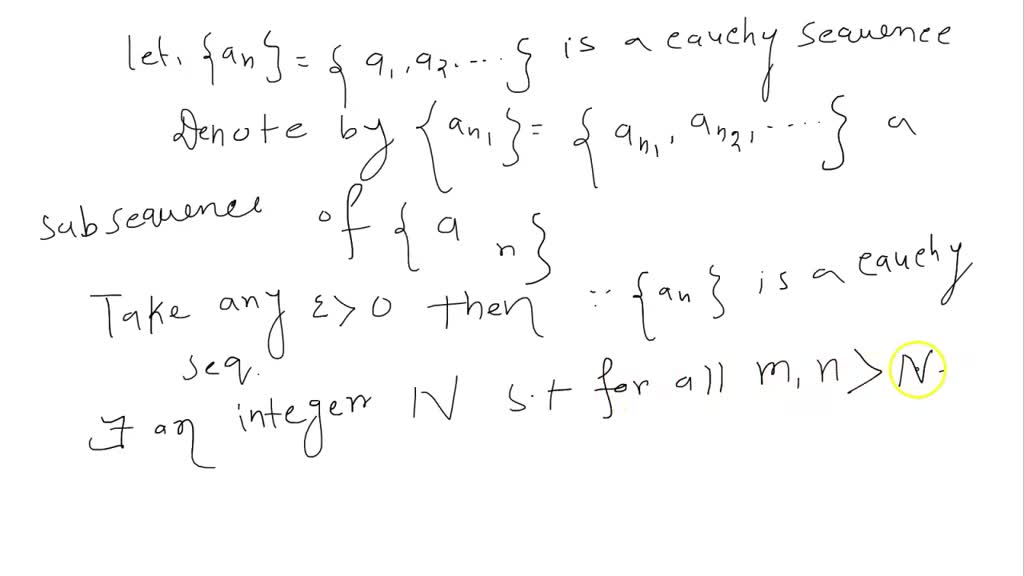 let. {an} = { a1, a2, .... } is a cauchy sequence
Denote by {an1} = { an1, an2, .... } a
subsequence of { a n }
Take any ε > 0 then ∵ {an} is a cauchy
seq.
∃ an integer N s.t for all m, n > N.